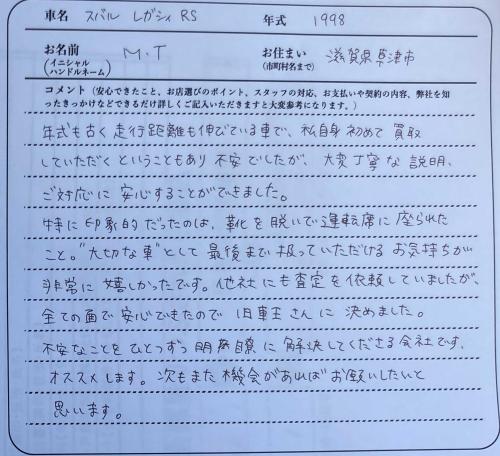 車名 スバル レガシィ RS 年式 1998
お名前 (イニシャル ハンドルネーム) M.T お住まい (市町村名まで) 滋賀県草津市
コメント（安心できたこと、お店選びのポイント、スタッフの対応、お支払いや契約の内容、弊社を知
ったきっかけなどできるだけ詳しくご記入いただきますと大変参考になります。）
年式も古く走行距離も伸びている車で、私自身初めて買取
していただくということもあり不安でしたが、大変丁寧な説明、
ご対応に安心することができました。
特に印象的だったのは、靴を脱いで運転席に座られた
こと。"大切な車"として最後まで扱っていただけるお気持ちが
非常に嬉しかったです。他社にも査定を依頼していましたが、
全ての面で安心できたので旧車王さんに決めました。
不安なことをひとつずつ明瞭に解決してくださる会社です。
オススメします。次もまた機会があればお願いしたいと
思います。